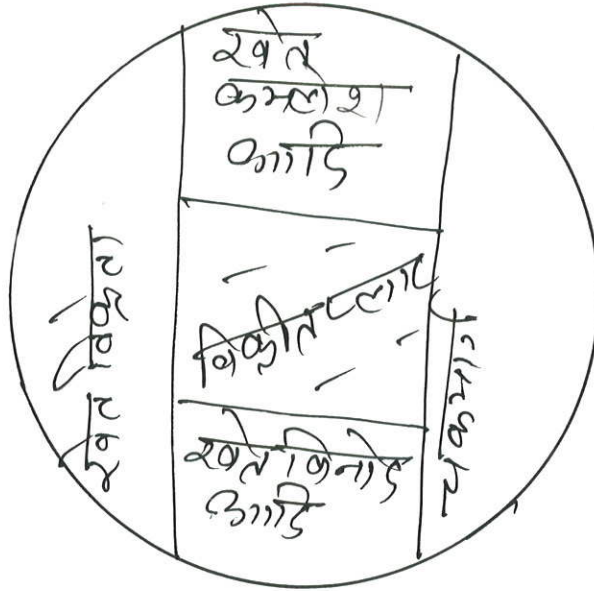 खेत
कमलेश
आदि
खेत विक्रेता
विक्रीत प्लाट
खेत विनोद
आदि